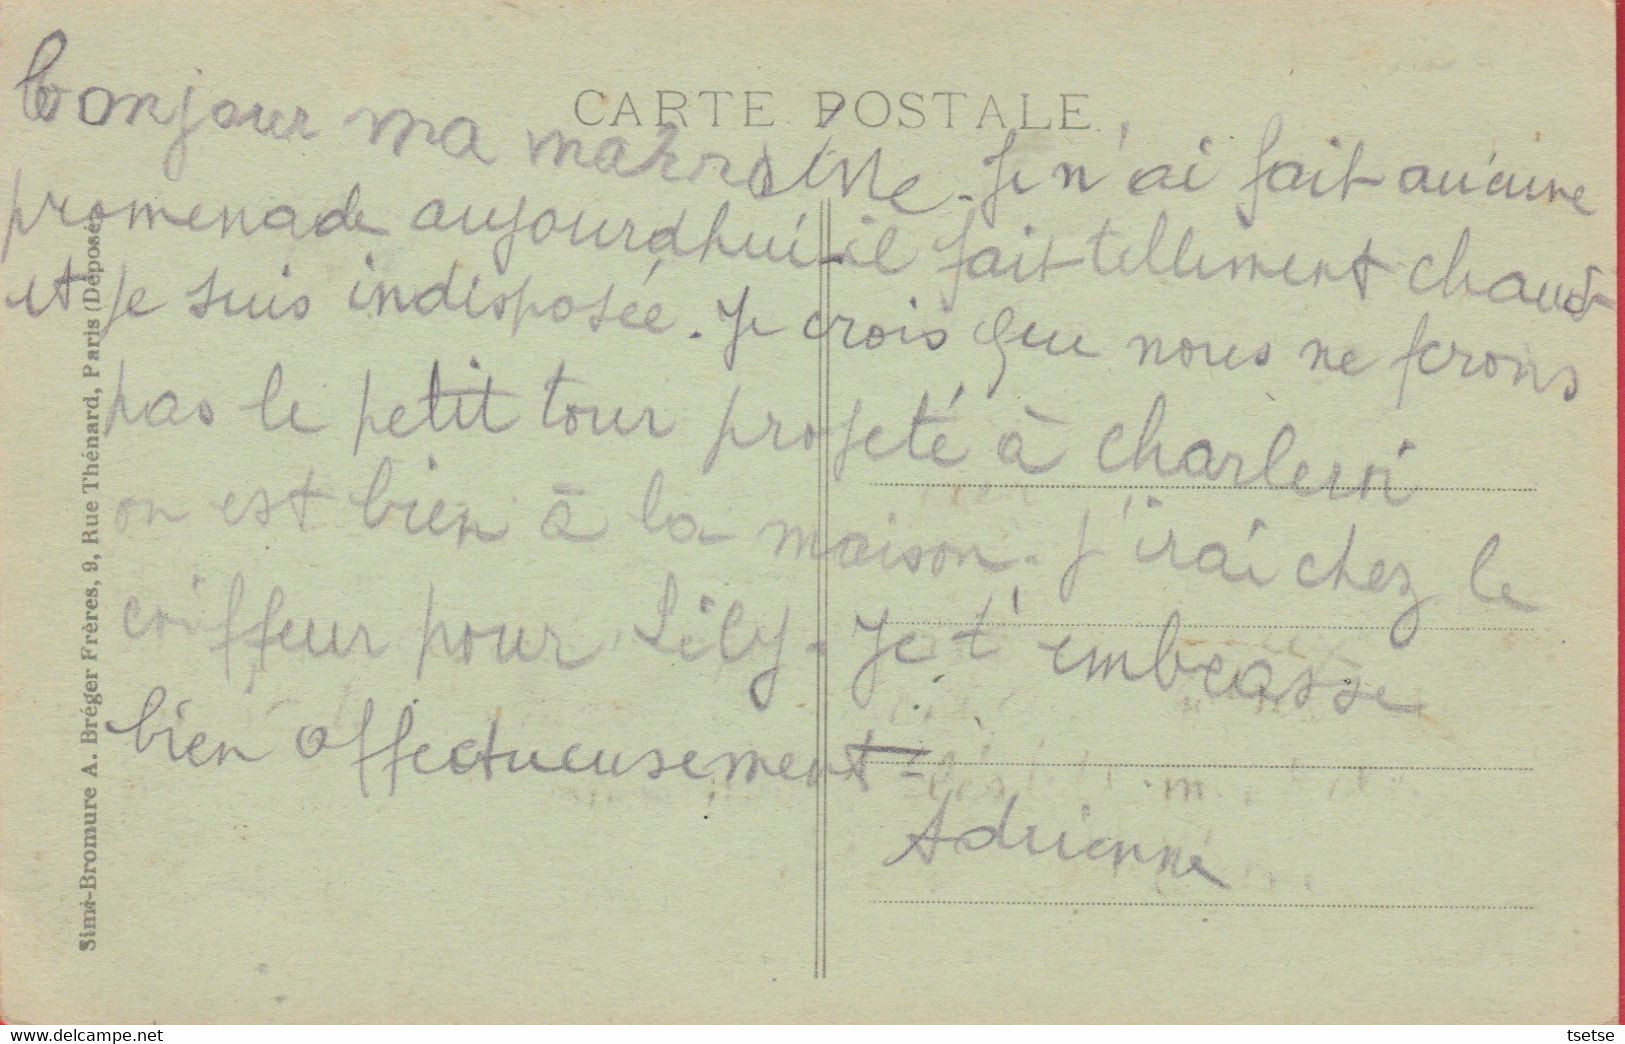 CARTE POSTALE
bonjour ma marraine. Je n'ai fait aucune
promenade aujourdhui il fait tellement chaud
et je suis indisposée. Je crois que nous ne ferons
pas le petit tour projeté à Charleroi
on est bien à la maison. J'irai chez le
coiffeur pour Lily. Je t'embrasse
bien affectueusement
Adrienne
Simi-Bromure A. Bréger Frères, 9, Rue Thénard, Paris (Déposé)
delcampe.net
tsetse